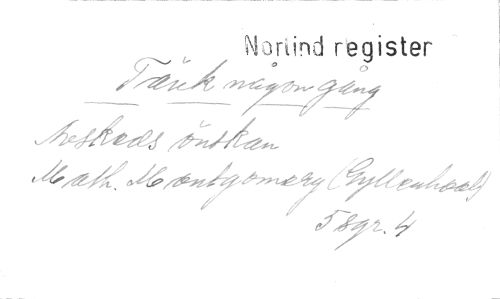 Norlind register
Tänk någon gång
Avskeds önskan
Math. Montgomery (Gyllenhaal)
5 sgr. 4